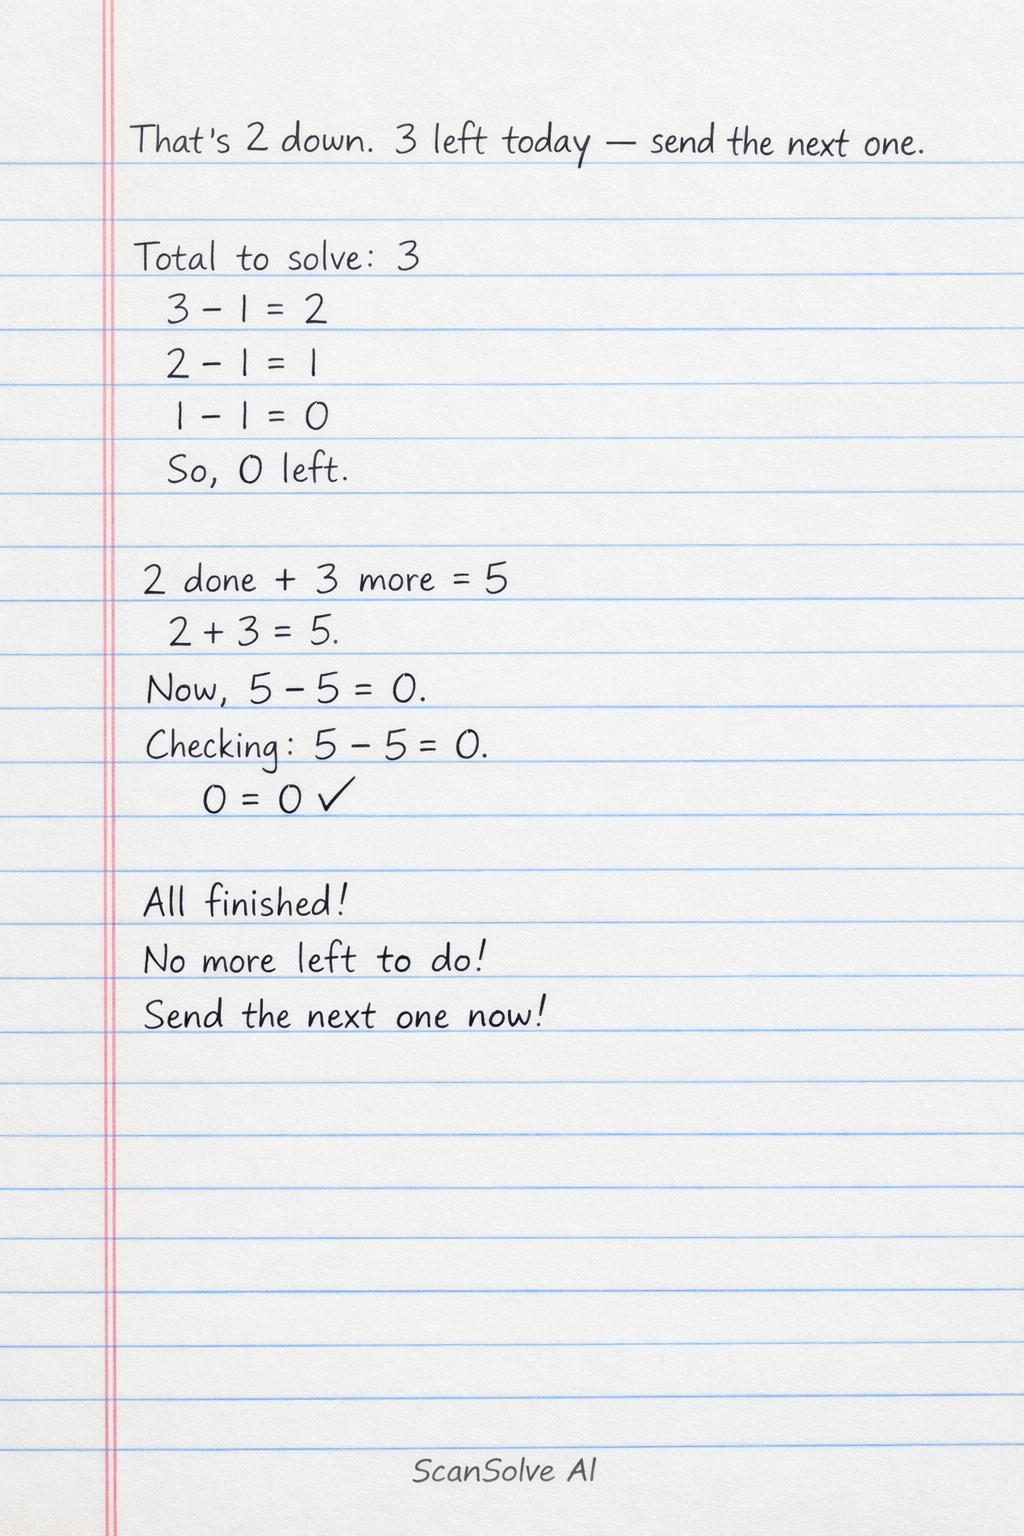 That's 2 down. 3 left today — send the next one.
Total to solve: 3
3 – 1 = 2
2 – 1 = 1
1 – 1 = 0
So, 0 left.
2 done + 3 more = 5
2 + 3 = 5.
Now, 5 – 5 = 0.
Checking: 5 – 5 = 0.
0 = 0 ✓
All finished!
No more left to do!
Send the next one now!
ScanSolve AI